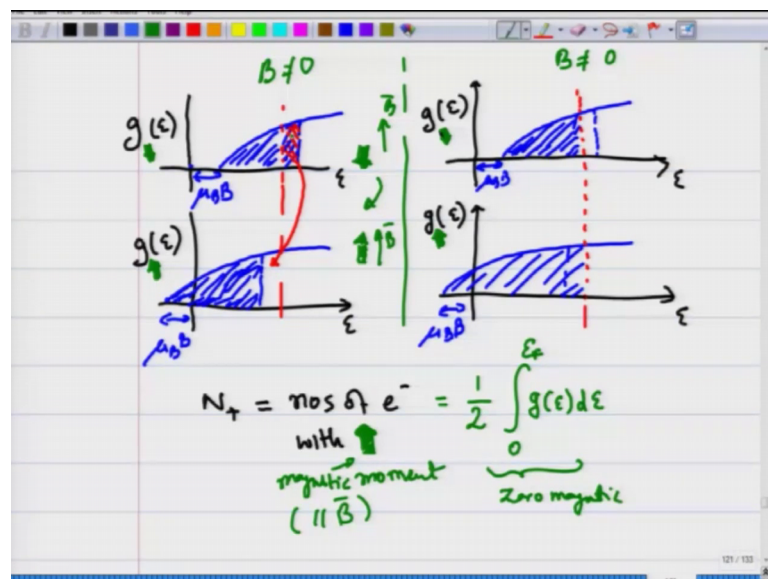 B ≠ 0
B ≠ 0
g(ε)
μ_B B
ε
B̄
g(ε)
μ_B B
ε
g(ε)
μ_B B
ε
B̄
g(ε)
μ_B B
ε
N₊ = nos of e⁻ = 1/2 ∫₀^{ε_F} g(ε)dε
with ⬆
magnetic moment
(|| B̄)
Zero magnetic
121 / 133